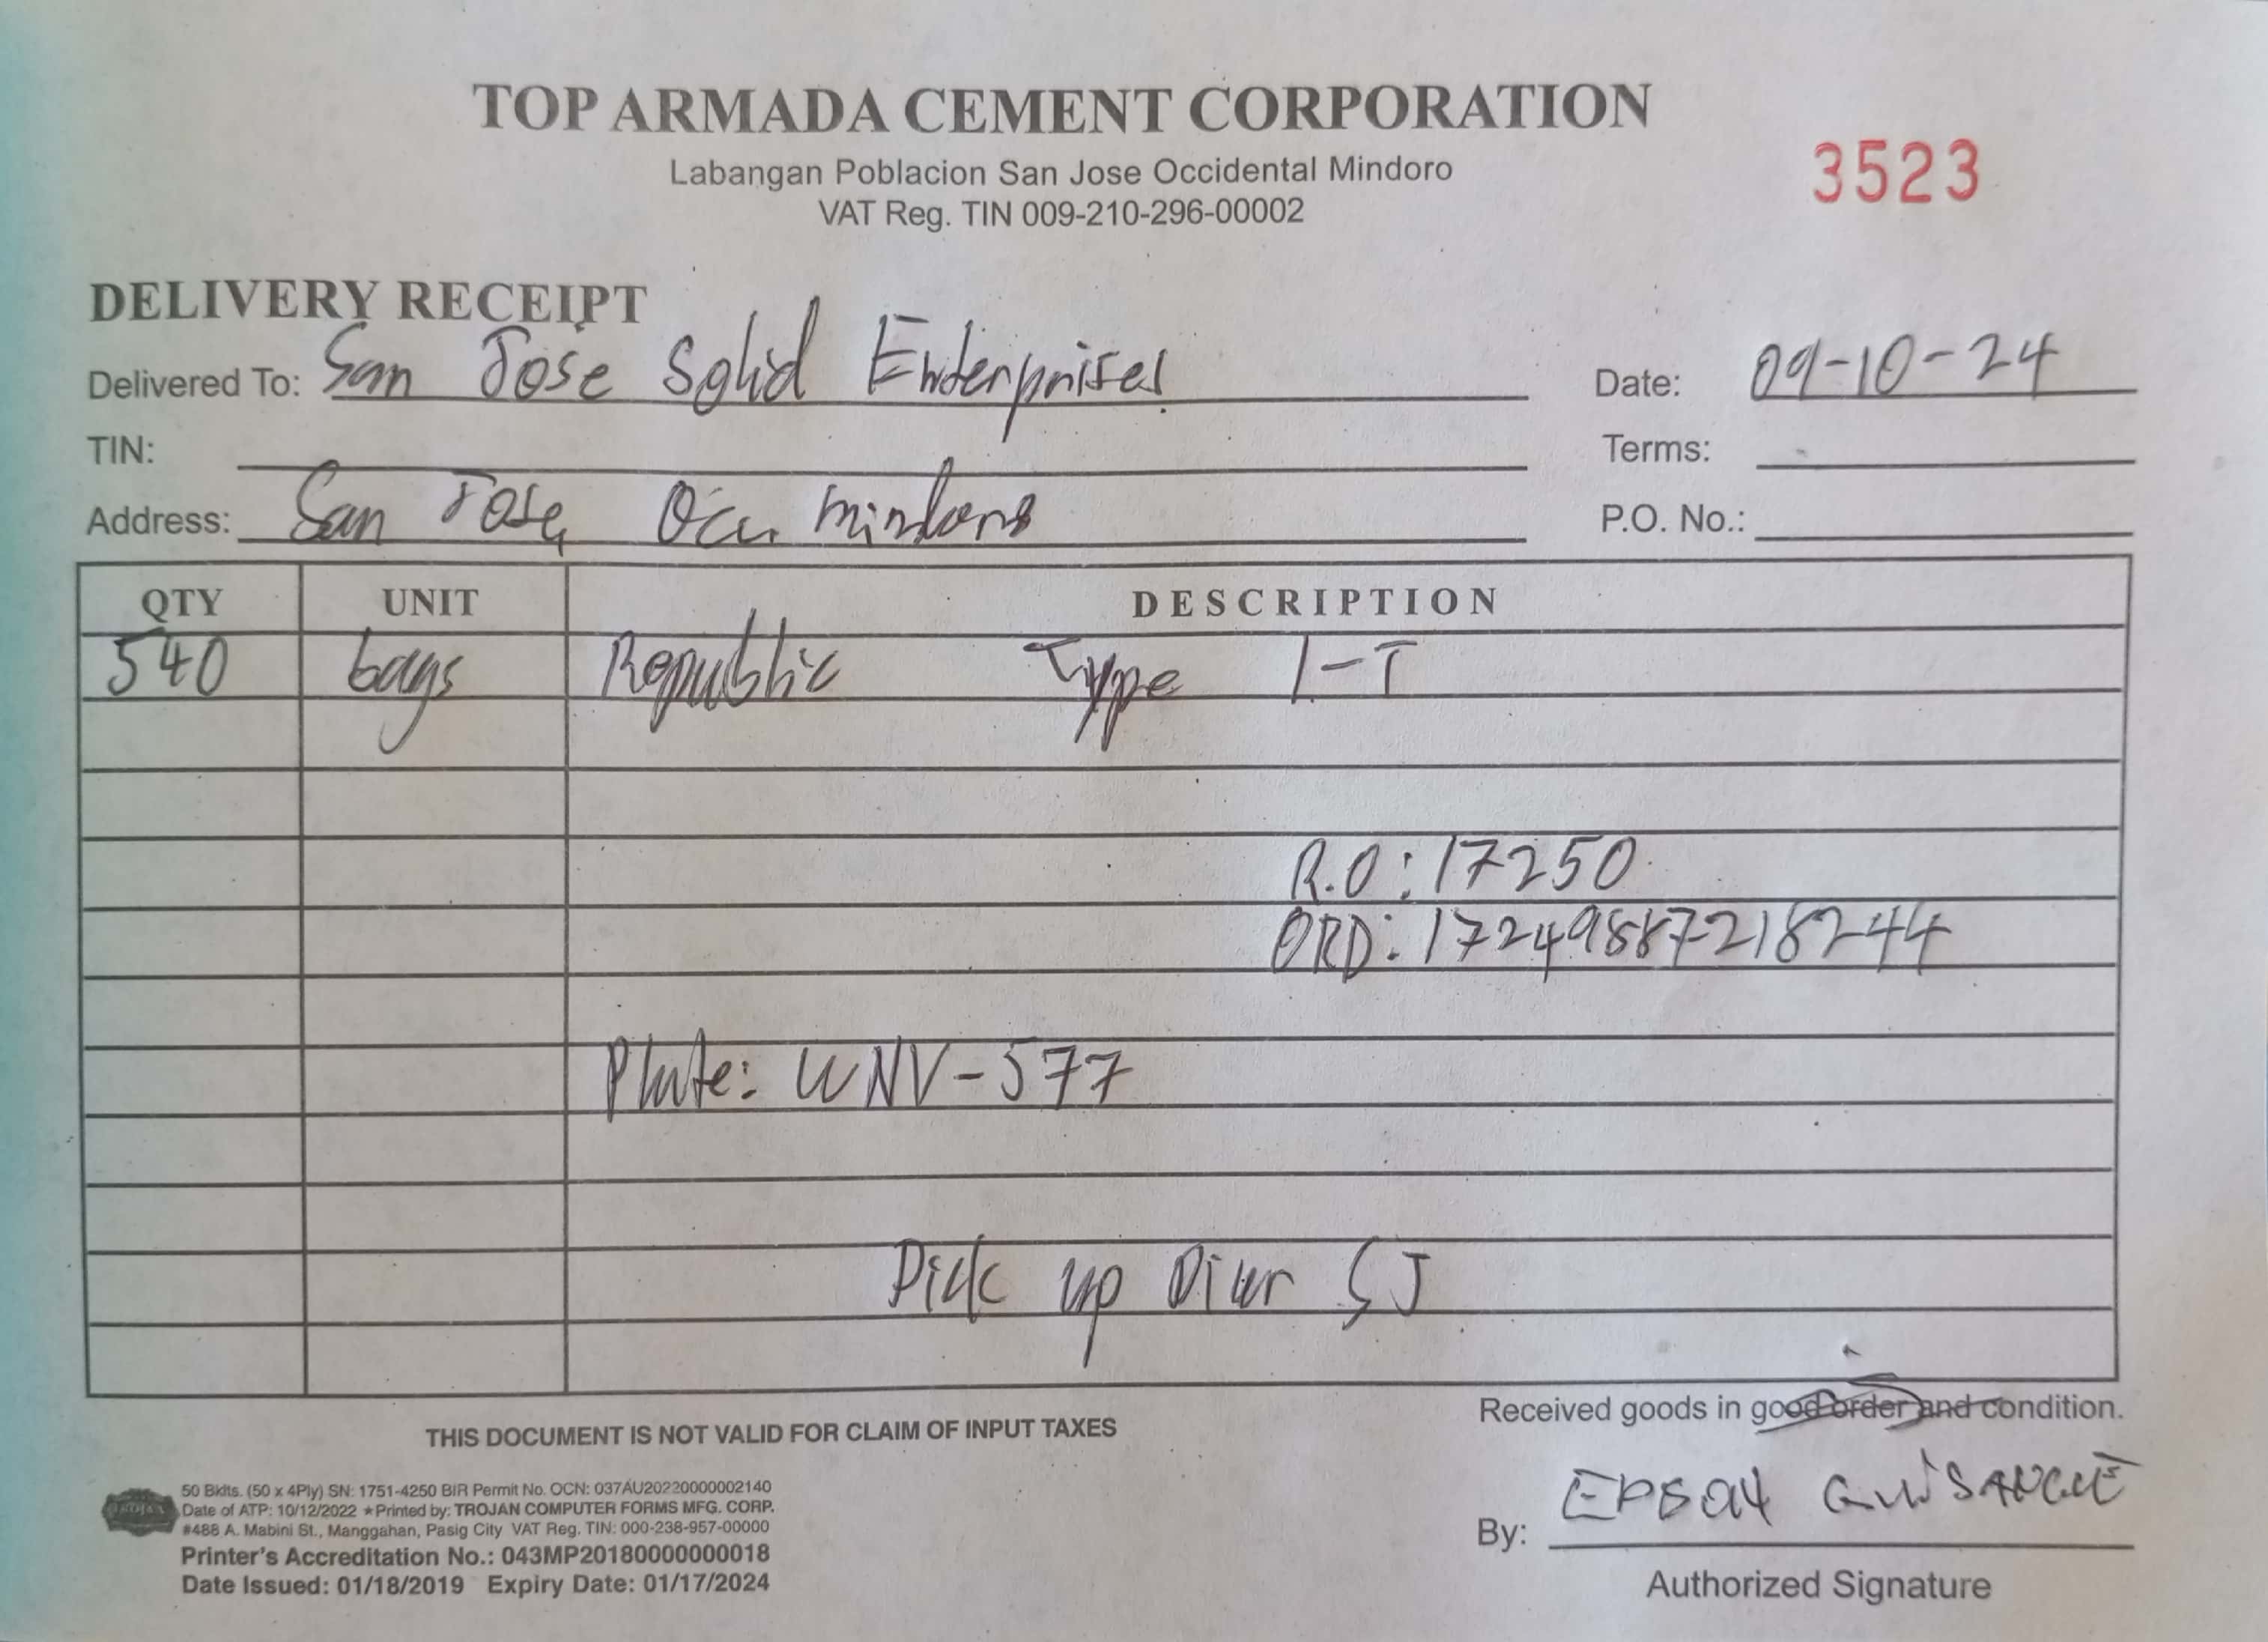 TOP ARMADA CEMENT CORPORATION
Labangan Poblacion San Jose Occidental Mindoro
VAT Reg. TIN 009-210-296-00002
3523
DELIVERY RECEIPT
Delivered To: San Jose Solid Enterprises
Date: 09-10-24
TIN:
Terms:
Address: San Jose, Occ. Mindoro
P.O. No.:
QTY UNIT DESCRIPTION
540 bags Republic Type 1-T
R.O: 17250
ORD: 17249887218244
Plate: WNV-577
Pick up SJ
Received goods in good order and condition.
THIS DOCUMENT IS NOT VALID FOR CLAIM OF INPUT TAXES
50 Bklts. (50 x 4Ply) SN: 1751-4250 BIR Permit No. OCN: 037AU20220000002140
Date of ATP: 10/12/2022 ★Printed by: TROJAN COMPUTER FORMS MFG. CORP.
#488 A. Mabini St., Manggahan, Pasig City VAT Reg. TIN: 000-238-957-00000
Printer's Accreditation No.: 043MP20180000000018
Date Issued: 01/18/2019 Expiry Date: 01/17/2024
By:
Authorized Signature